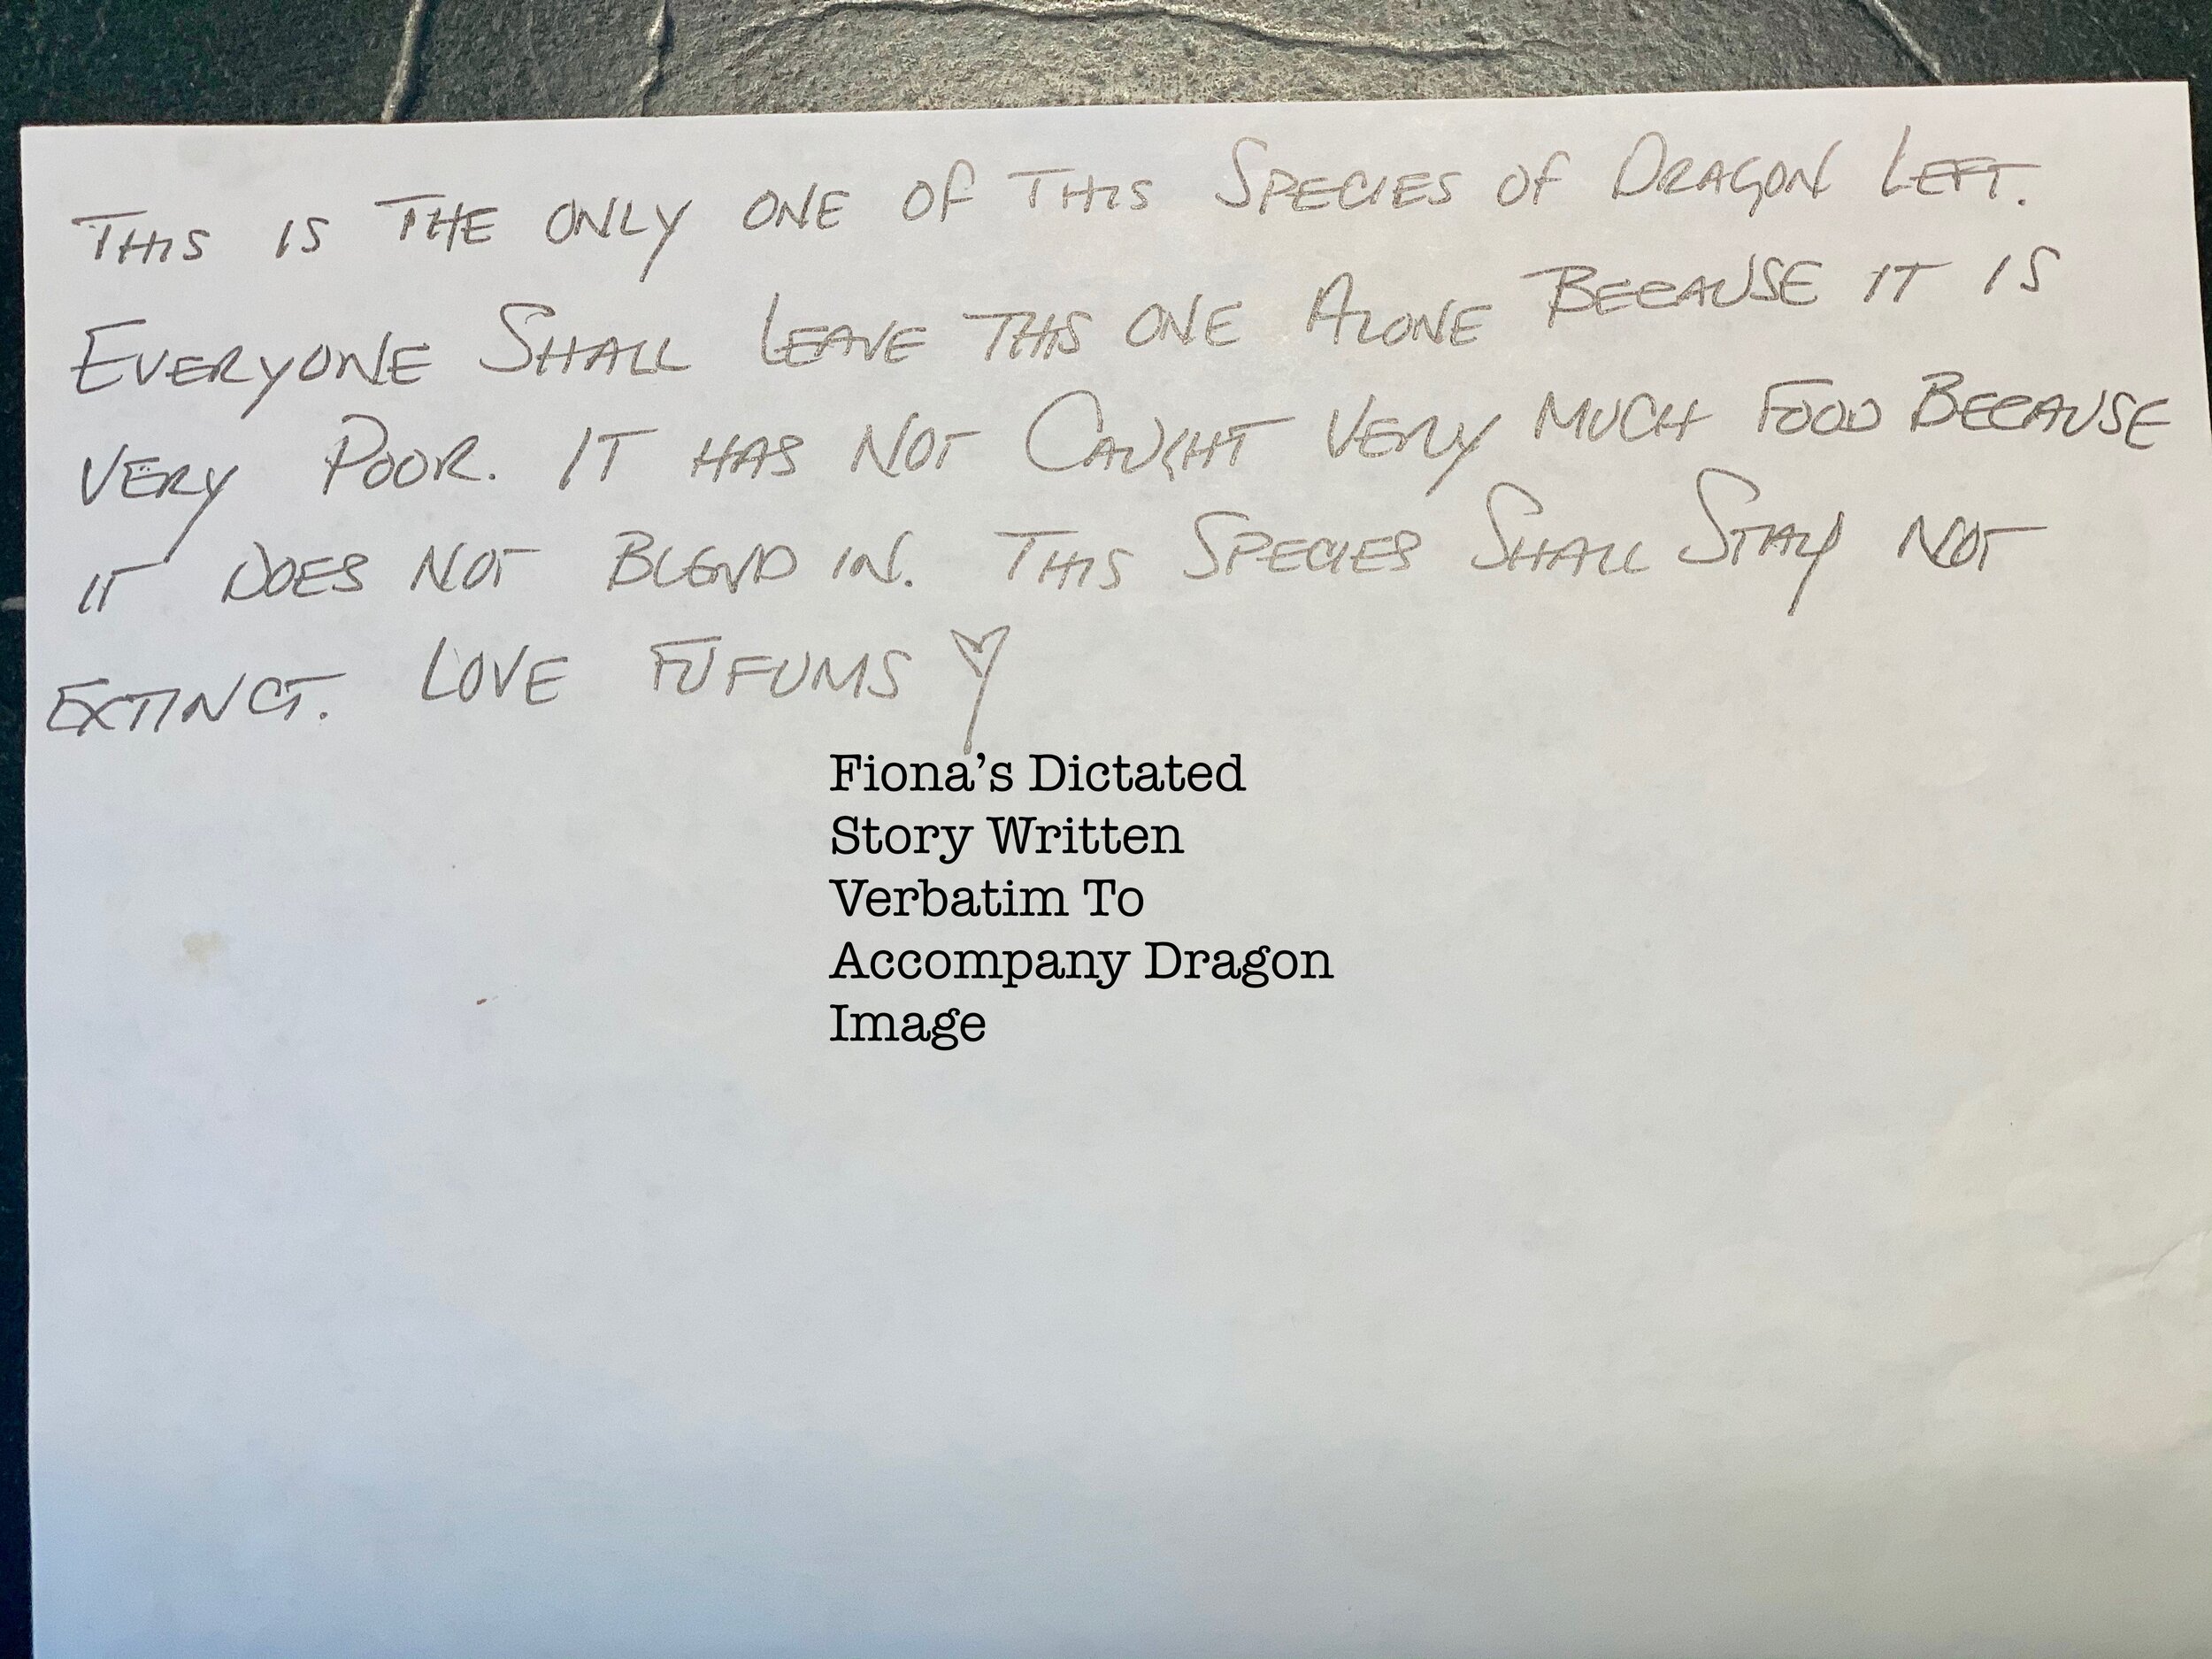 THIS IS THE ONLY ONE OF THIS SPECIES OF DRAGON LEFT.
EVERYONE SHALL LEAVE THIS ONE ALONE BECAUSE IT IS
VERY POOR. IT HAS NOT CAUGHT VERY MUCH FOOD BECAUSE
IT DOES NOT BLEND IN. THIS SPECIES SHALL STAY NOT
EXTINCT. LOVE FUFUMS ♡
Fiona’s Dictated
Story Written
Verbatim To
Accompany Dragon
Image